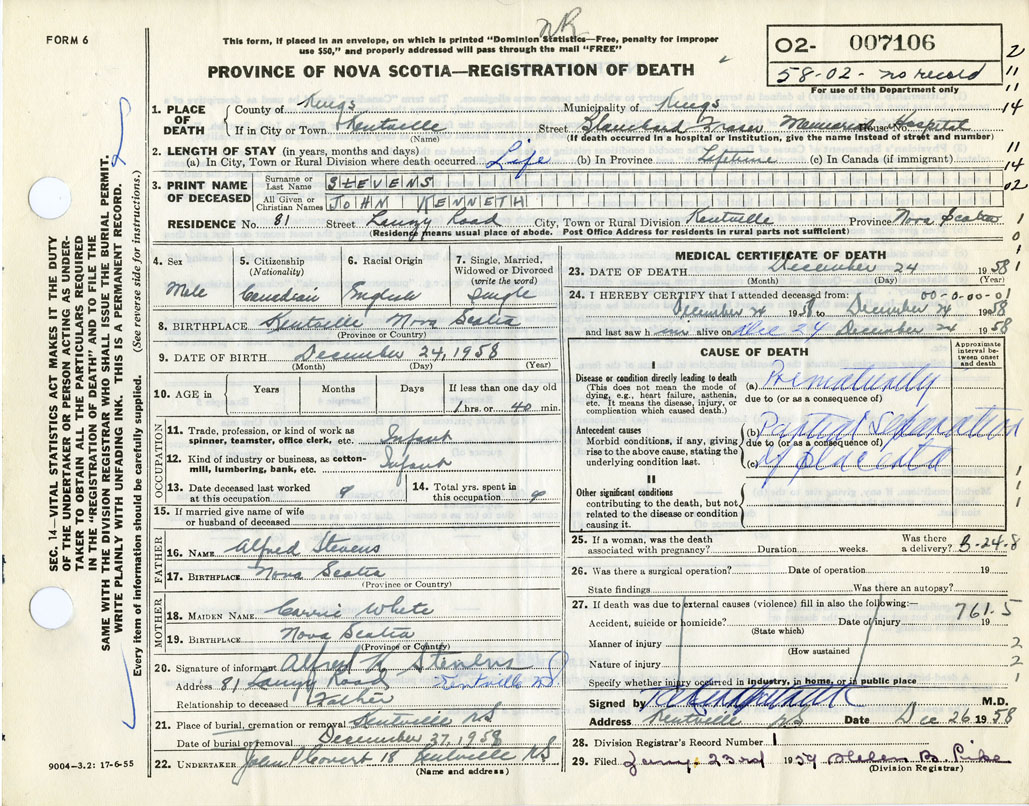 FORM 6
NR
This form, if placed in an envelope, on which is printed "Dominion Statistics—Free, penalty for improper
use $50," and properly addressed will pass through the mail "FREE"
PROVINCE OF NOVA SCOTIA—REGISTRATION OF DEATH
02- 007106
58-02- no record
For use of the Department only
2
11
11
14
11
14
02
1
0
1
SEC. 14—VITAL STATISTICS ACT MAKES IT THE DUTY
OF THE UNDERTAKER OR PERSON ACTING AS UNDER-
TAKER TO OBTAIN ALL THE PARTICULARS REQUIRED
IN THE "REGISTRATION OF DEATH" AND TO FILE THE
SAME WITH THE DIVISION REGISTRAR WHO SHALL ISSUE THE BURIAL PERMIT.
WRITE PLAINLY WITH UNFADING INK. THIS IS A PERMANENT RECORD.
Every item of information should be carefully supplied. (See reverse side for instructions.)
1. PLACE OF DEATH County of Kings Municipality of Kings
If in City or Town Kentville Street Blanchard Fraser Memorial House No. Hospital
(Name) (If death occurred in a hospital or institution, give the name instead of street and number)
2. LENGTH OF STAY (in years, months and days)
(a) In City, Town or Rural Division where death occurred Life (b) In Province Lifetime (c) In Canada (if immigrant)
3. PRINT NAME OF DECEASED Surname or Last Name STEVENS
All Given or Christian Names JOHN KENNETH
RESIDENCE No. 81 Street Road City, Town or Rural Division Kentville Province Nova Scotia
(Residence means usual place of abode. Post Office Address for residents in rural parts not sufficient)
4. Sex 5. Citizenship (Nationality) 6. Racial Origin 7. Single, Married, Widowed or Divorced (write the word)
Male Canadian English Single
8. BIRTHPLACE Kentville Nova Scotia
(Province or Country)
9. DATE OF BIRTH December 24, 1958
(Month) (Day) (Year)
10. AGE in Years Months Days If less than one day old
1 hrs. or 40 min.
OCCUPATION
11. Trade, profession, or kind of work as spinner, teamster, office clerk, etc. Infant
12. Kind of industry or business, as cotton-mill, lumbering, bank, etc. Infant
13. Date deceased last worked at this occupation 14. Total yrs. spent in this occupation
15. If married give name of wife or husband of deceased
FATHER
16. NAME Alfred Stevens
17. BIRTHPLACE Nova Scotia
(Province or Country)
MOTHER
18. MAIDEN NAME Carrie White
19. BIRTHPLACE Nova Scotia
(Province or Country)
20. Signature of informant Alfred K. Stevens
Address 81 Road Kentville N.S.
Relationship to deceased Father
21. Place of burial, cremation or removal Kentville NS
Date of burial or removal December 27, 1958
22. UNDERTAKER Kentville NS
(Name and address)
9004-3.2: 17-6-55
MEDICAL CERTIFICATE OF DEATH
23. DATE OF DEATH December 24 1958
(Month) (Day) (Year)
24. I HEREBY CERTIFY that I attended deceased from: 00-0-00-01
December 24 1958 to December 24 1958
and last saw him alive on Dec 24 December 24 1958
CAUSE OF DEATH
Approximate interval between onset and death
I
Disease or condition directly leading to death (a) Prematurity
(This does not mean the mode of dying, e.g., heart failure, asthenia, etc. It means the disease, injury, or complication which caused death.)
due to (or as a consequence of)
Antecedent causes (b) Partial Separation
Morbid conditions, if any, giving rise to the above cause, stating the underlying condition last.
due to (or as a consequence of)
(c) of placenta
II
Other significant conditions
contributing to the death, but not related to the disease or condition causing it.
1
1
1
25. If a woman, was the death associated with pregnancy? Duration weeks. Was there a delivery? B-24-8
26. Was there a surgical operation? Date of operation 19
State findings Was there an autopsy?
27. If death was due to external causes (violence) fill in also the following:— 761.5
Accident, suicide or homicide? Date of injury 19
(State which)
Manner of injury 2
(How sustained
Nature of injury 2
Specify whether injury occurred in industry, in home, or in public place 1
Signed by M.D.
Address Kentville N.S. Date Dec 26 1958
28. Division Registrar's Record Number 1
29. Filed Jany. 23rd 1959 Helen B. Pike
(Division Registrar)